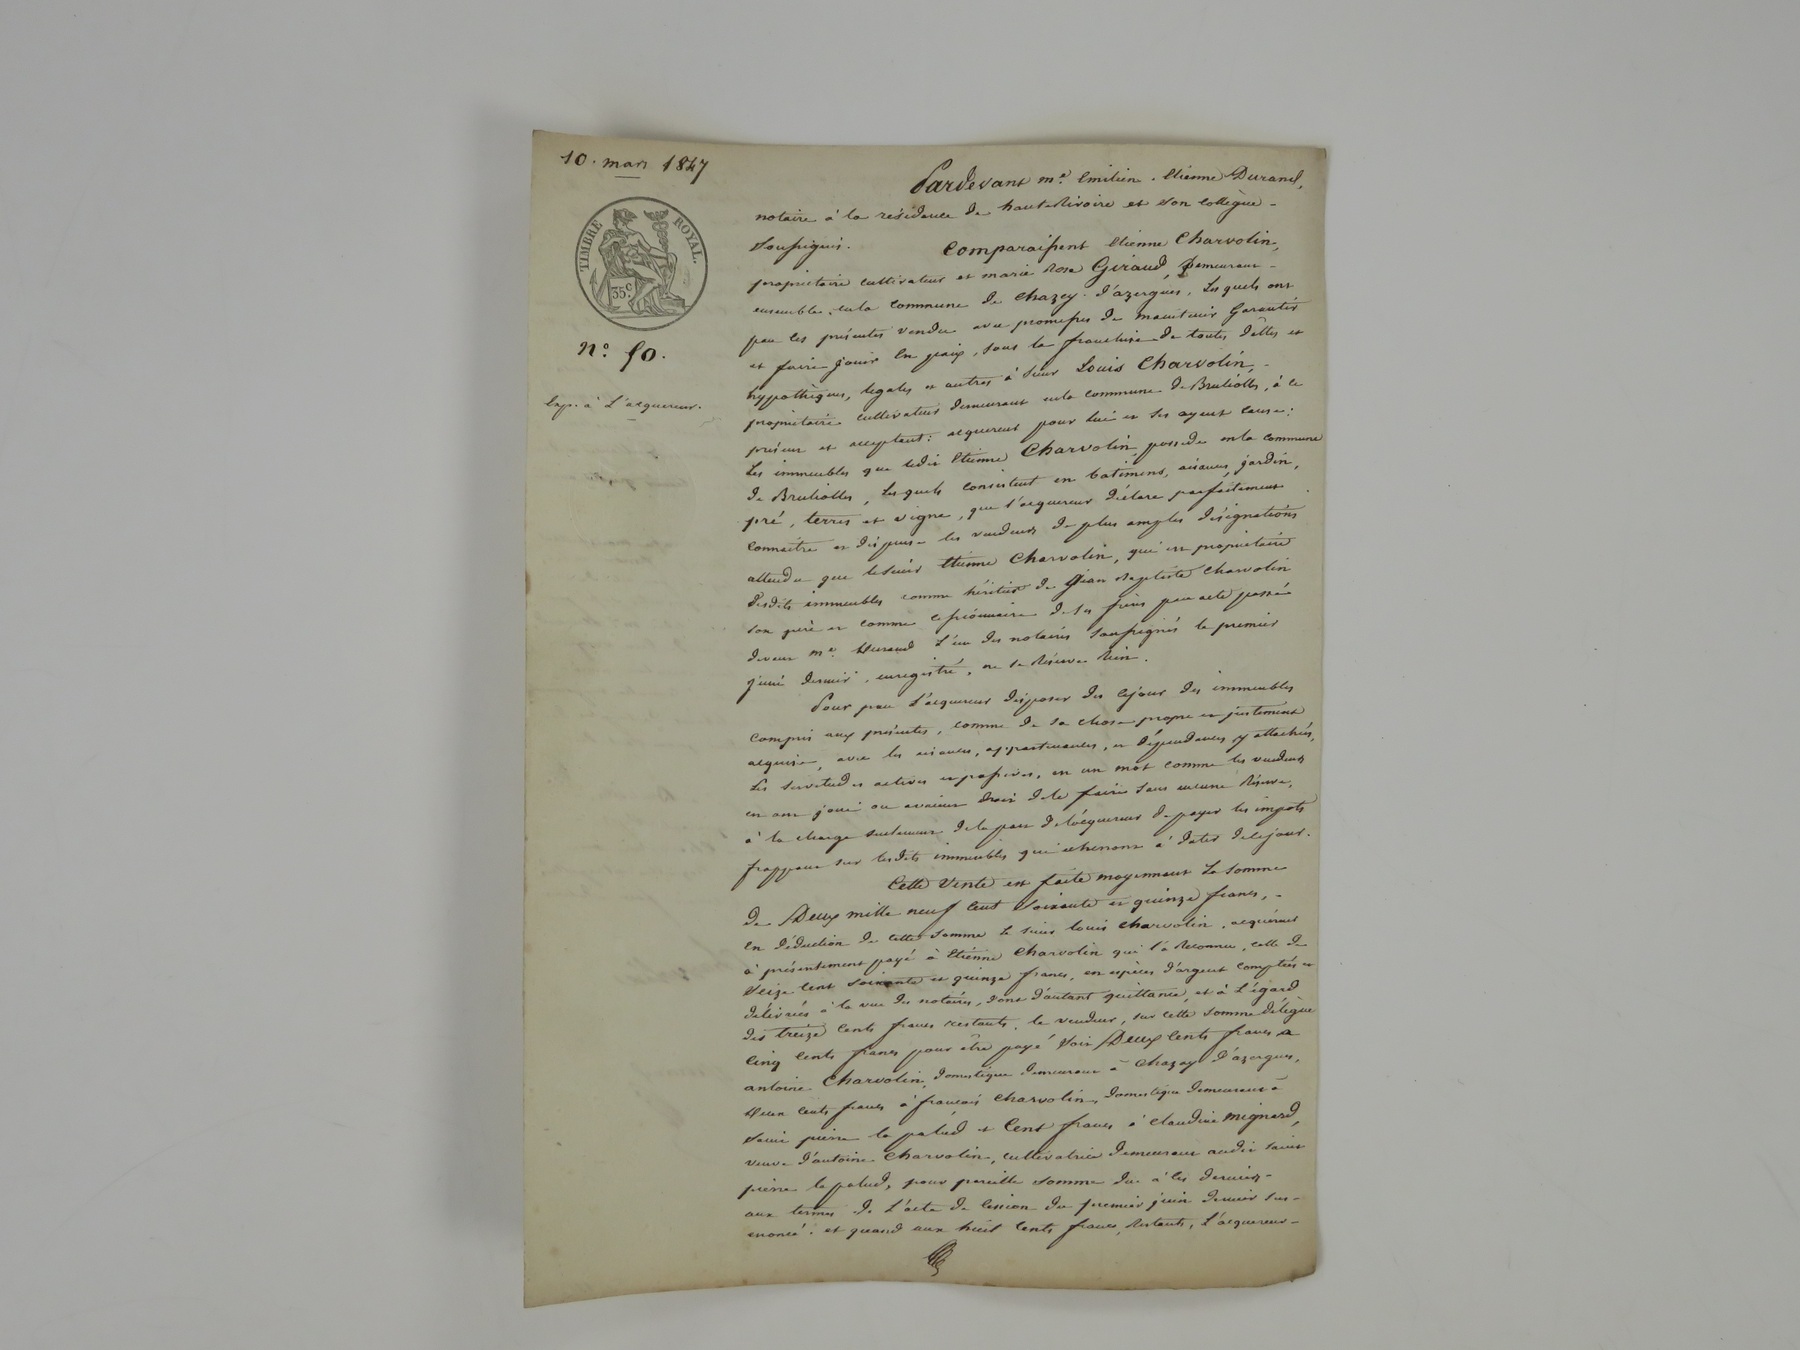 10. mars 1847
TIMBRE ROYAL.
35c.
n.o 50.
Exp. à L'acquereur.
Pardevant me. Emilien. Etienne Durand,
notaire à la résidence de haute Rivoire et son collègue -
soussignés. Comparaissent Etienne Charvolin,
propriétaire cultivateur et marie Rose Giraud, Demeurant -
ensemble en la commune de Chazey. d'azergues. Les quels ont
par les présentes vendu avec promesses de maintenir Garantir
et faire jouir En paix, sous la franchise de toutes dettes et
hypothèques, legales et autres à sieur Louis Charvolin, -
propriétaire cultivateur demeurant en la commune de Brulioles, à ce
présent et acceptant: acquereur pour lui et ses ayant cause:
Les immeubles que ledit Etienne Charvolin possede en la commune
de Brulioles, Les quels consistent en batimens, aisances, jardin,
pré, terres et vigne, que l'acquereur déclare parfaitement
connaitre et dispense les vendeurs de plus amples désignations
attendu que le sieur Etienne Charvolin, qui est propriétaire
desdits immeubles comme héritier de Jean Baptiste Charvolin
son père et comme cessionnaire de ses frères par acte passé
devant me. Durand L'un des notaires soussignés le premier
juin dernier, enregistré, ne se Réserve Rien.
Pour par l'acquereur disposer dès cejour des immeubles
compris aux présentes, comme de sa chose propre et justement
acquise, avec les aisances, appartenances, et dépendances y attachées,
Les servitudes actives et passives, en un mot comme les vendeurs
en ont joui ou avaient droit de le faire sans aucune Réserve,
à la charge seulement de la part de l'acquereur de payer les impots
frappant sur lesdits immeubles qui echerront à dater de ce jour.
Cette Vente est faite moyennant La somme
de Deux mille neuf Cent Soixante et quinze francs, -
En déduction de cette somme Le sieur louis Charvolin, acquéreur
à présentement payé à Etienne Charvolin qui l'a Reconnu, celle de
Seize Cent soixante et quinze francs, en espèces d'argent comptées et
délivrées à la vue des notaires, dont d'autant quittance, et à L'égard
des treize Cents francs restants, le vendeur, sur cette somme délègue
Cinq Cents francs pour être payé Soit Deux Cents francs a
antoine Charvolin, domestique demeurant à Chazay d'azergues,
Deux cents francs à francois Charvolin, domestique demeurant à
Saint pierre la palud et Cent francs à Claudine mignard,
veuve d'antoine Charvolin, cultivatrice demeurant audit saint
pierre la palud, pour pareille somme due à ces derniers -
aux termes de L'acte de Cession du premier juin dernier sus-
enoncé: et quand aux huit Cents francs, Restants, L'acquereur -